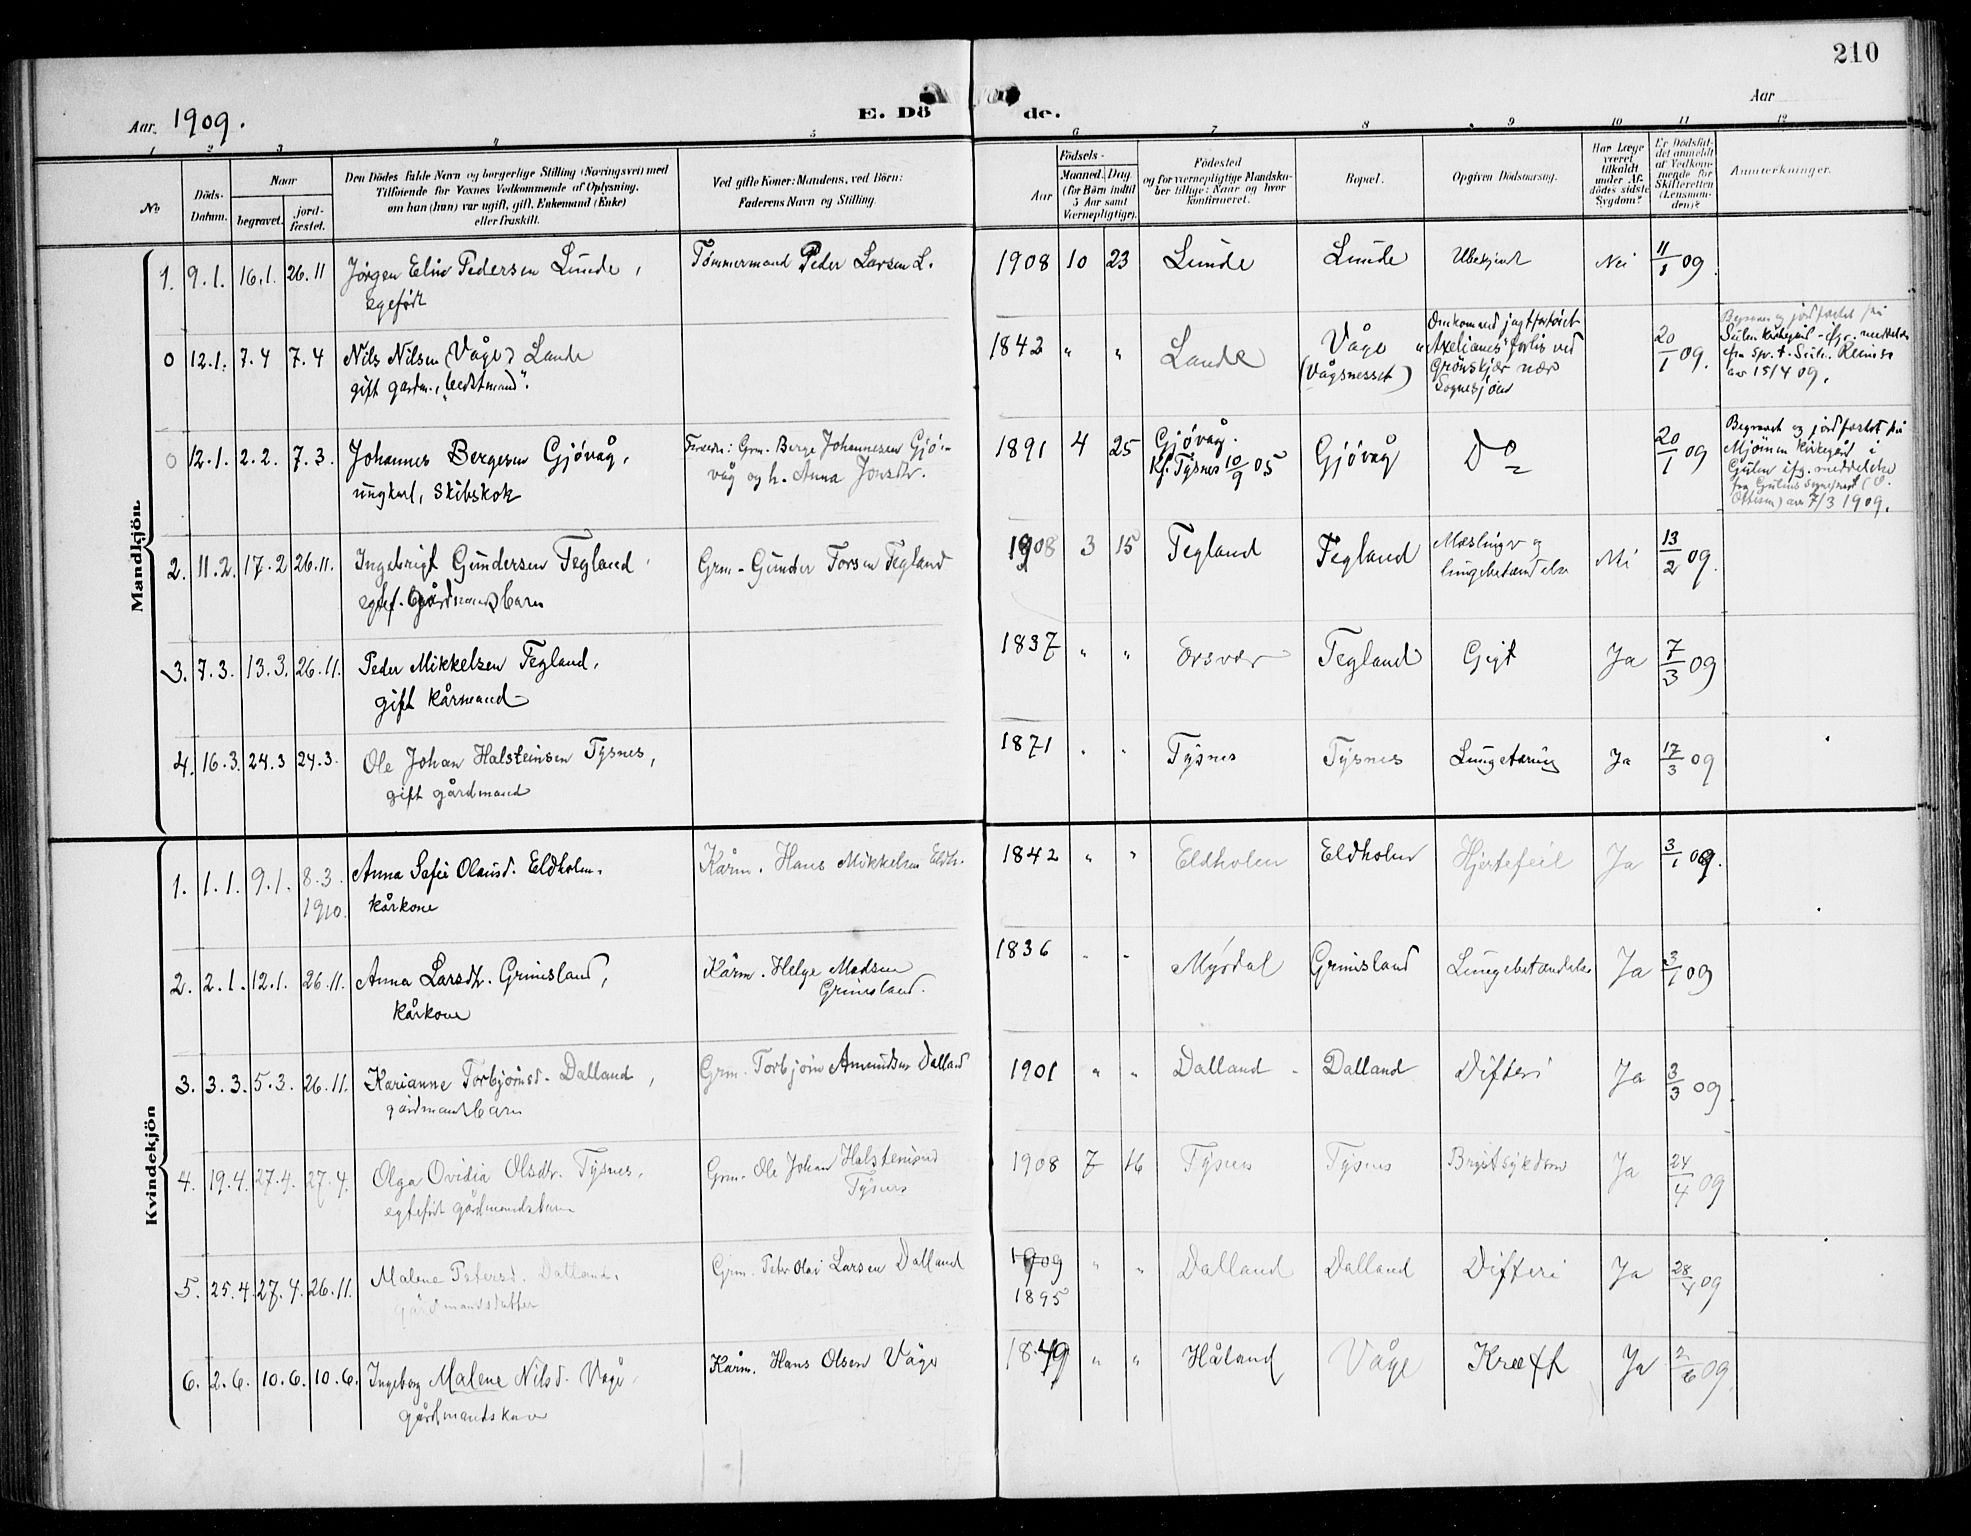 210
Aar. 1909.
E. Dö de.
Aar
1 2 3 4 5 6 7 8 9 10 11 12
No
Döds-Datum.
Naar
begravet.
jord-fæstet.
Den Dödes fulde Navn og borgerlige Stilling (Næringsvei) med
Tilföiende for Voxnes Vedkommende af Oplysning,
om han (hun) var ugift, gift, Enkemand (Enke)
eller fraskilt.
Ved gifte Koner: Mandens, ved Börn:
Faderens Navn og Stilling.
Födsels-
Aar
Maaned. Dag.
(for Börn indtil
5 Aar samt
Værnepligtige).
Födested
og for værnepligtige Mandska-
ber tillige: Naar og hvor
konfirmeret.
Bopæl.
Opgiven Dödsaarsag.
Har Læge
været
tilkaldt
under Af-
dödes sidste
Sygdom?
Er Dödsfal-
det anmeldt
af Vedkom-
mende for
Skifteretten
(Lensman-
den)?
Anmærkninger.
Mandkjön.
1. 9.1. 16.1. 26.11 Jørgen Elin Pedersen Lunde, Tømmermand Peder Larsen L. 1908 10 23 Lunde Lunde Ubekjendt Nei 11/1 09
0 12.1. 7.4 7.4 Nils Nilsen (Våge) Lande 1842 " " Lande Våge (Vågsnesset) Omkommed jagtfartöiet
gift gardm., "bedstmand". "Axelianes" forlis ved
Grönskjær nær
Sognesjöen 20/1 09.
Begravet og jordfæstet på
Sulen kirkegård - ifg. meddelelse
av 15/4 09.
0 12.1. 2.2. 7.3. Johannes Bergesen Gjövåg, Foreldr: Grm. Berge Johannesen Gjö-
ungkarl, Skibskok våg og h. Anna Jonsdtr. 1891 4 25 Gjövåg.
Kf. Tysnes 10/9 05 Gjövåg Do 20/1 09
Begravet og jordfæstet på
Mjömen kirkegård i
Gulen ifg. meddelelse
av 7/3 1909.
2. 11.2. 17.2 26.11. Ingebrigt Gundersen Tegland, Grm. Gunder Torsen Tegland 1908 3 15 Tegland Tegland Mæslinger og
egtef. gårdmandsbarn lungebetændelse Nei 13/2 09.
3. 7.3. 13.3. 26.11. Peder Mikkelsen Tegland, 1837 " " Ersvær Tegland Gigt Ja 7/3 09
gift kårmand
4. 16.3. 24.3 24.3. Ole Johan Halsteinsen Tysnes, 1871 " " Tysnes Tysnes Lungetæring Ja 17/3 09
gift gårdmand
Kvindekjön
1. 1.1. 9.1. 8.3. 1910. Anna Sofie Olausd. Eldholm, Kårm. Hans Mikkelsen Eldh. 1842 " " Eldholm Eldholm Hjertefeil Ja 3/1 09.
kårkone
2. 2.1. 12.1. 26.11. Anna Larsdtr. Grimsland, Kårm. Helge Madsen Grimsland. 1836 " " Myrdal Grimsland Lungebetændelse Ja 3/1 09
kårkone
3. 3.3. 5.3. 26.11. Karianne Torbjörnsd. Dalland, Grm. Torbjörn Amundsen Dalland 1901 " " Dalland Dalland Difteri Ja 3/3 09
gårdmandsbarn
4. 19.4. 27.4. 27.4. Olga Ovidia Olsdtr. Tysnes, Grm. Ole Johan Halsteinsen Tysnes 1908 7 16 Tysnes Tysnes Brystsykdom Ja 24/4 09
egtefödt gårdmandsbarn
5. 25.4. 27.4. 26.11. Malene Petersd. Dalland, Grm. Peter Olai Larsen Dalland 1909 1895 " " Dalland Dalland Difteri Ja 28/4 09
gårdmandsdatter
6. 2.6. 10.6. 10.6. Ingeborg Malene Nilsd. Våge, Kårm. Hans Olsen Våge 1849 " " Håland Våge Kræft Ja 2/6 09
gårdmandskone